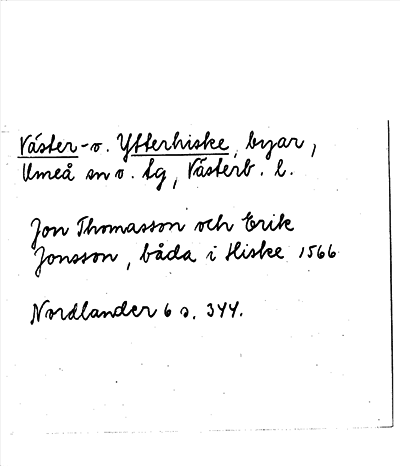 Väster- o. Ytterhiske, byar,
Umeå sn o. tg, Västerb. l.
Jon Thomasson och Erik
Jonsson, båda i Hiske 1566
Nordlander 6 s. 344.